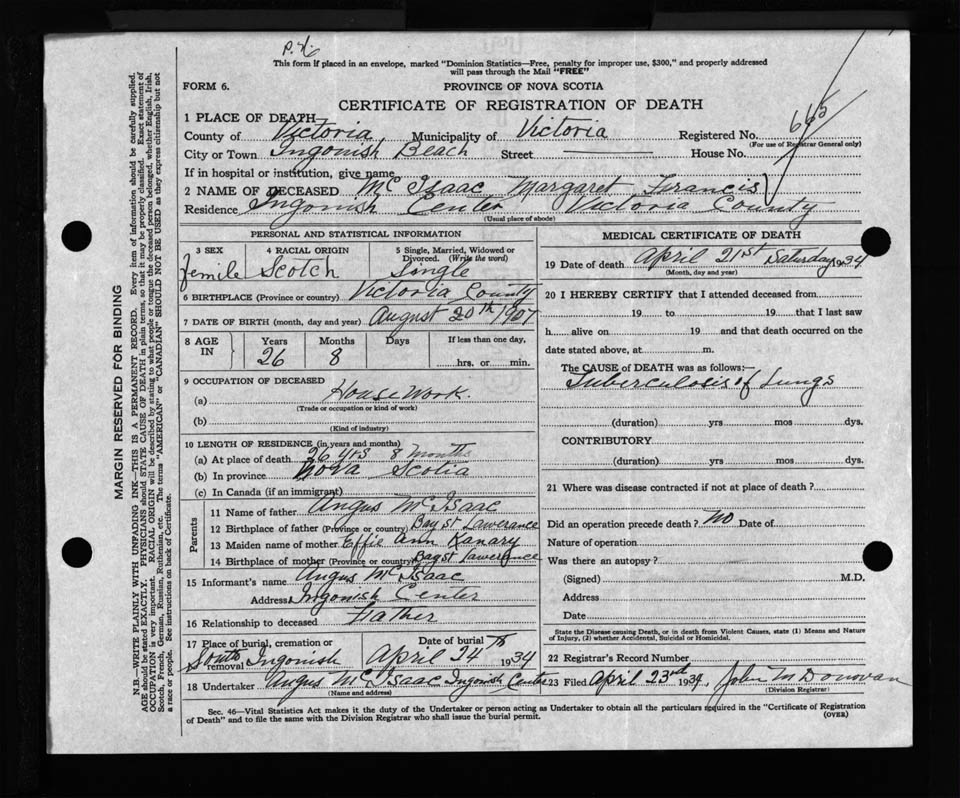 P.H.
This form if placed in an envelope, marked "Dominion Statistics—Free, penalty for improper use, $300," and properly addressed
will pass through the Mail "FREE"
FORM 6.
PROVINCE OF NOVA SCOTIA
CERTIFICATE OF REGISTRATION OF DEATH
1 PLACE OF DEATH—
County of Victoria Municipality of Victoria Registered No. 665
(For use of Registrar General only)
City or Town Ingonish Beach Street House No.
If in hospital or institution, give name
2 NAME OF DECEASED Mc Isaac Margaret Francis
Residence Ingonish Center Victoria County
(Usual place of abode)
PERSONAL AND STATISTICAL INFORMATION
3 SEX 4 RACIAL ORIGIN 5 Single, Married, Widowed or
Divorced. (Write the word)
femile Scotch Single
6 BIRTHPLACE (Province or country) Victoria County
7 DATE OF BIRTH (month, day and year) August 20th 1907
8 AGE IN Years Months Days If less than one day,
26 8 hrs. or min.
9 OCCUPATION OF DECEASED
(a) House Work
(Trade or occupation or kind of work)
(b)
(Kind of industry)
10 LENGTH OF RESIDENCE (in years and months)
(a) At place of death 26 yrs 8 months
(b) In province Nova Scotia
(c) In Canada (if an immigrant)
Parents
11 Name of father Angus Mc Isaac
12 Birthplace of father (Province or country) Bay st Lawerance
13 Maiden name of mother Effie Ann Kanary
14 Birthplace of mother (Province or country) Bay st Lawerance
15 Informant's name Angus Mc Isaac
Address Ingonish Center
16 Relationship to deceased Father
17 Place of burial, cremation or removal South Ingonish
Date of burial April 24 th 1934
18 Undertaker Angus Mc Isaac Ingonish Center
(Name and address)
MEDICAL CERTIFICATE OF DEATH
19 Date of death April 21st Saturday 1934
(Month, day and year)
20 I HEREBY CERTIFY that I attended deceased from
19 to 19 that I last saw
h alive on 19 and that death occurred on the
date stated above, at m.
The CAUSE of DEATH was as follows:—
Tuberculosis of Lungs
(duration) yrs mos dys.
CONTRIBUTORY
(duration) yrs mos dys.
21 Where was disease contracted if not at place of death?
Did an operation precede death? No Date of
Nature of operation
Was there an autopsy?
(Signed) M.D.
Address
Date
State the Disease causing Death, or in death from Violent Causes, state (1) Means and Nature
of Injury, (2) whether Accidental, Suicidal or Homicidal.
22 Registrar's Record Number
23 Filed April 23rd 1934, John M Donovan
(Division Registrar)
Sec. 46—Vital Statistics Act makes it the duty of the Undertaker or person acting as Undertaker to obtain all the particulars required in the "Certificate of Registration
of Death" and to file the same with the Division Registrar who shall issue the burial permit. (OVER)
MARGIN RESERVED FOR BINDING
N.B.—WRITE PLAINLY WITH UNFADING INK—THIS IS A PERMANENT RECORD. Every item of information should be carefully supplied.
AGE should be stated EXACTLY. PHYSICIANS should STATE CAUSE OF DEATH in plain terms, so that it may be properly classified. Exact statement of
OCCUPATION is very important. RACIAL ORIGIN will be described by stating to what people or tongue the deceased person belonged, whether English, Irish,
Scotch, French, German, Russian, Ruthenian, etc. The terms "AMERICAN" or "CANADIAN" SHOULD NOT BE USED as they express citizenship but not
a race or people. See instructions on back of Certificate.